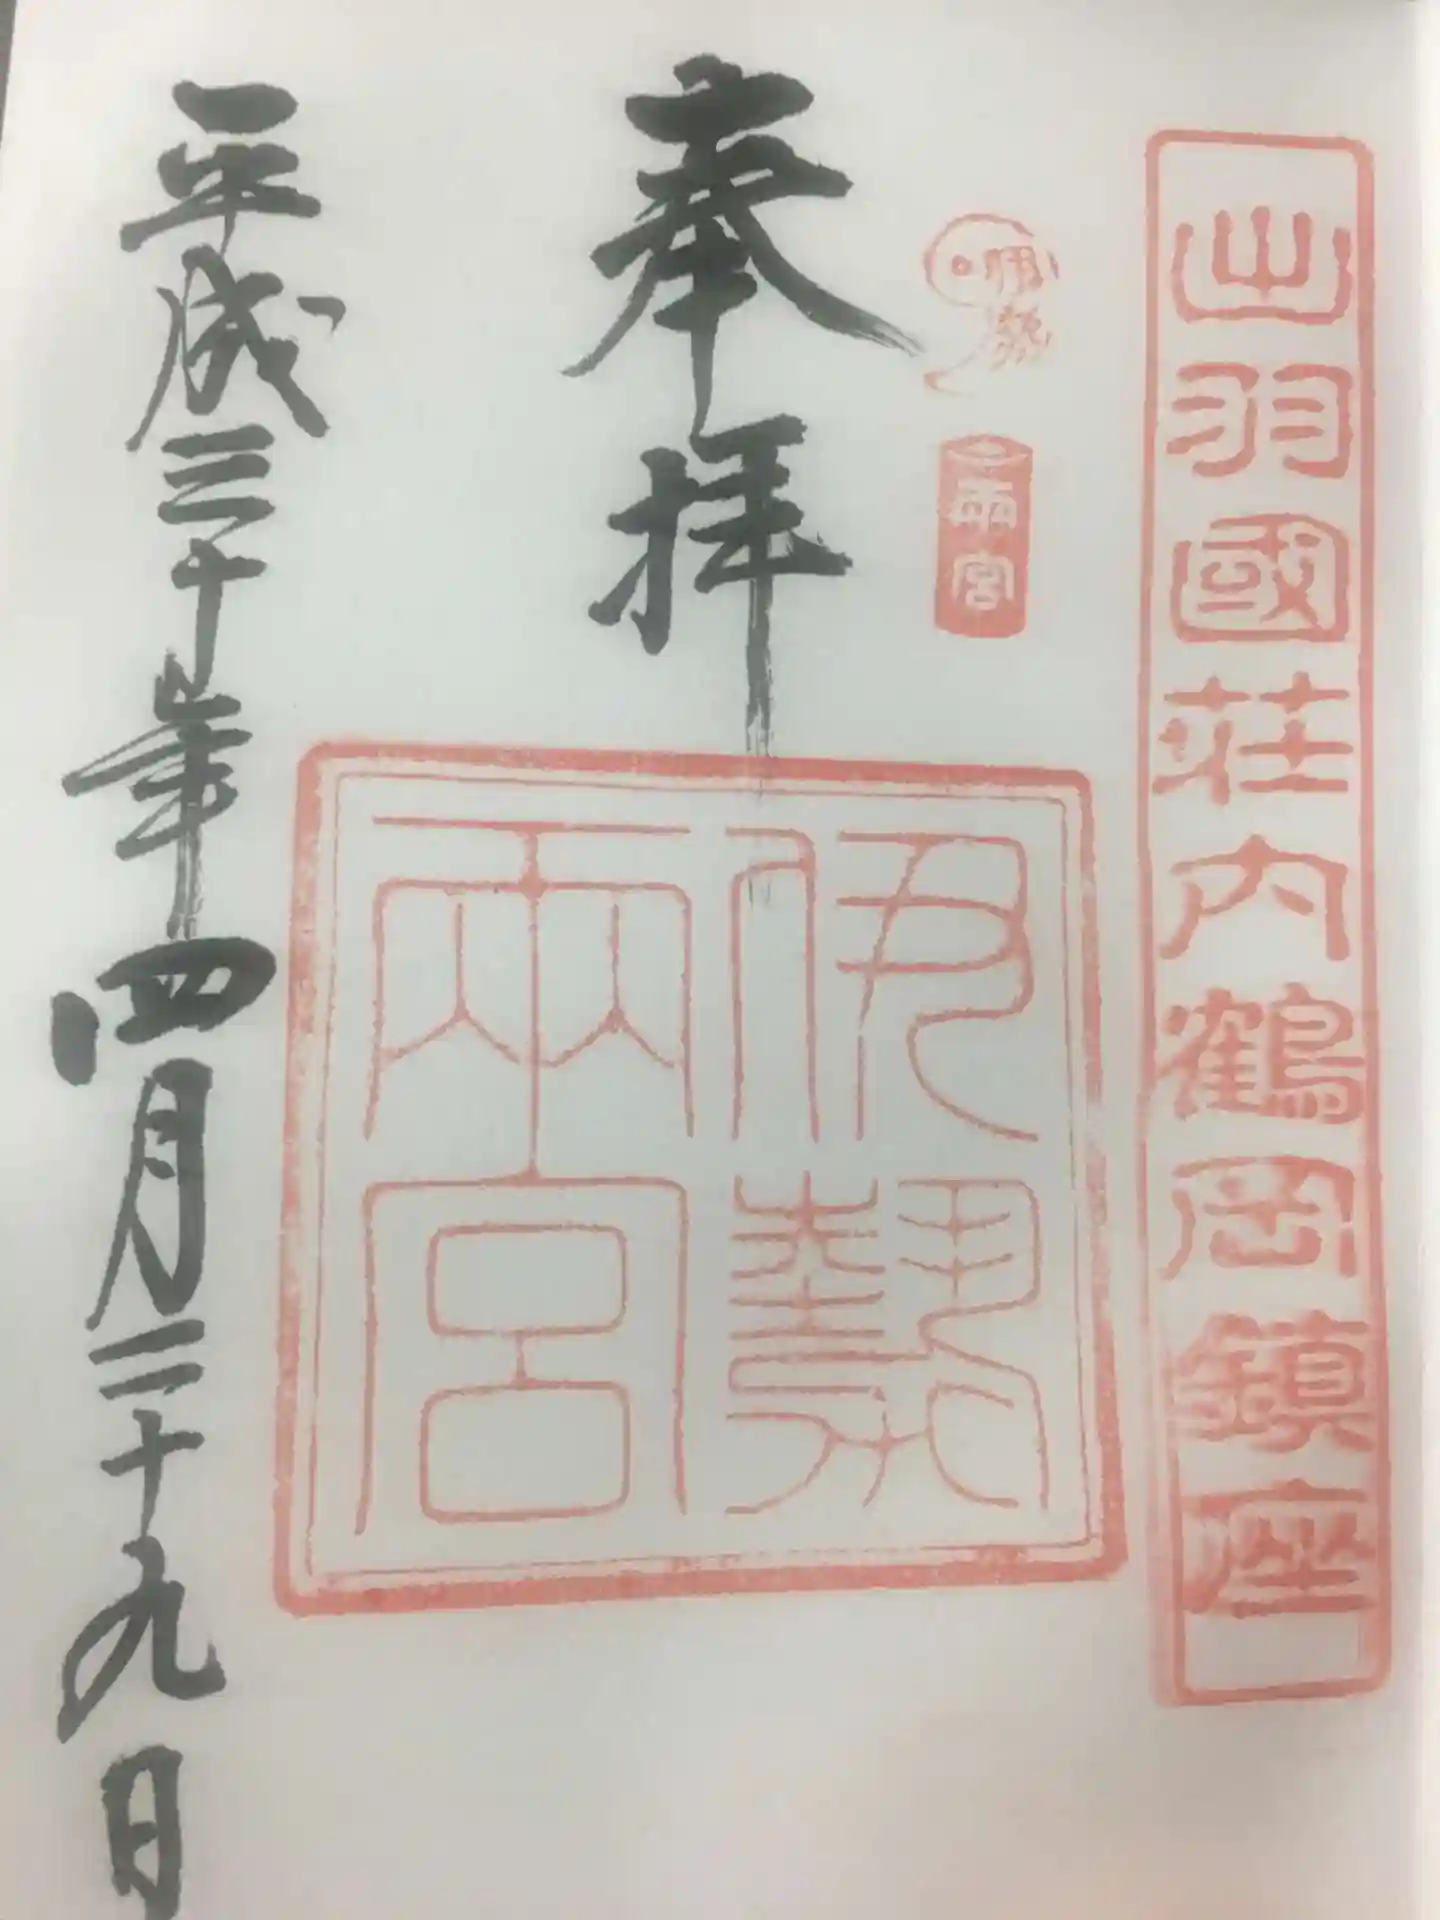 出羽國荘内鶴岡鎮座
伊勢
両宮
奉拝
伊勢
両宮
平成三十年四月二十九日